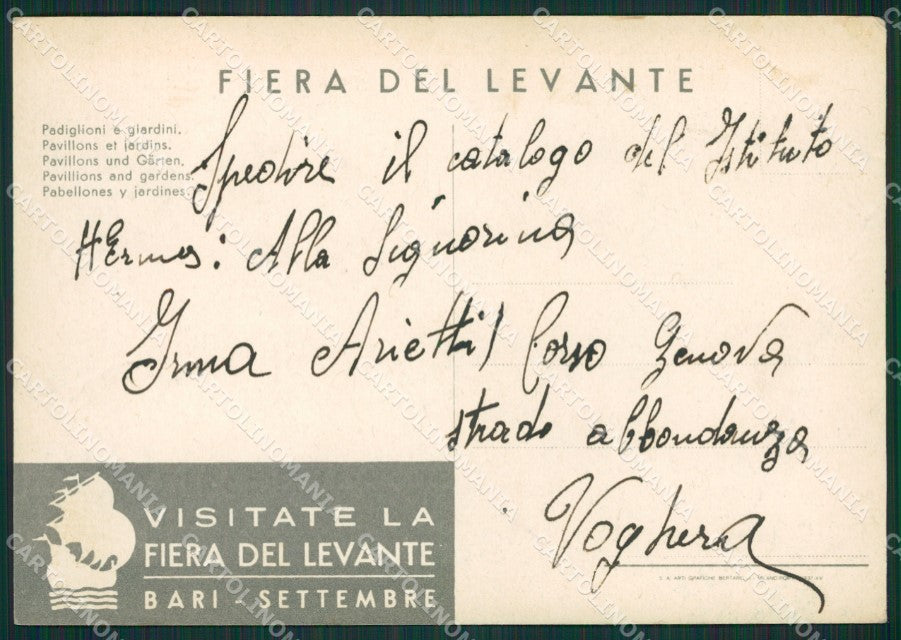 FIERA DEL LEVANTE
Padiglioni e giardini.
Pavillons et jardins.
Pavillons und Gärten.
Pavillions and gardens.
Pabellones y jardines.
Spedire il catalogo del Istituto
Hermes: Alla Signorina
Irma Arietti / Corso Genova
strada abbondanza
Voghera
VISITATE LA
FIERA DEL LEVANTE
BARI - SETTEMBRE
S. A. ARTI GRAFICHE BERTARELLI
CARTOLINOMANIA